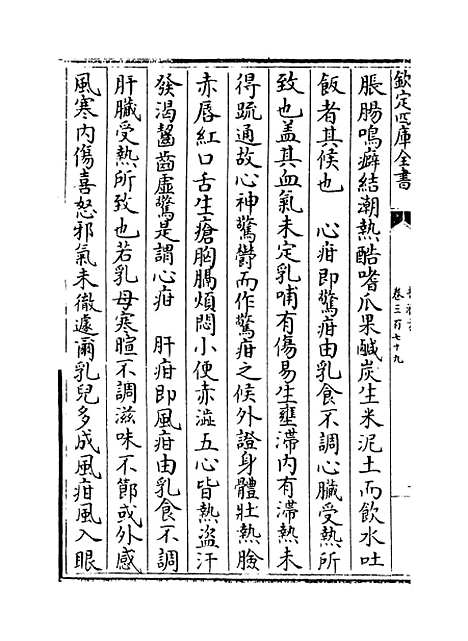 欽定四庫全書
卷三百七十九
脹腸鳴癖結潮熱酷嗜瓜果鹹炭生米泥土而飲水吐
飯者其候也　心疳即驚疳由乳食不調心臟受熱所
致也盖其血氣未定乳哺有傷易生壅滯内有滯熱未
得疏通故心神驚鬱而作驚疳之候外證身體壯熱臉
赤唇紅口舌生瘡胸膈煩悶小便赤澁五心皆熱盗汗
發渴齧齒虚驚是謂心疳　肝疳即風疳由乳食不調
肝臟受熱所致也若乳母寒暄不調滋味不節或外感
風寒内傷喜怒邪氣未徹遽爾乳兒多成風疳風入眼